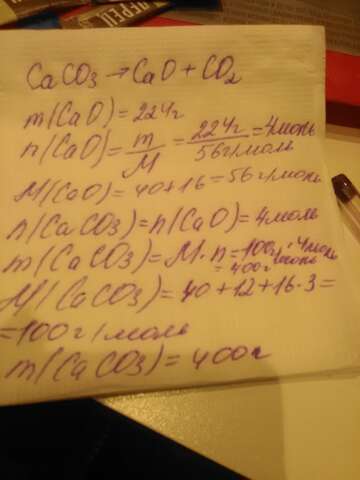 ПЕРЕЦ
CaCO₃ → CaO + CO₂
m(CaO) = 224г
n(CaO) = m/M = 224г/56г/моль = 4моль
M(CaO) = 40+16 = 56г/моль
n(CaCO₃) = n(CaO) = 4моль
m(CaCO₃) = M · n = 100г/моль · 4моль
= 400г
M(CaCO₃) = 40+12+16·3 =
= 100г/моль
m(CaCO₃) = 400г